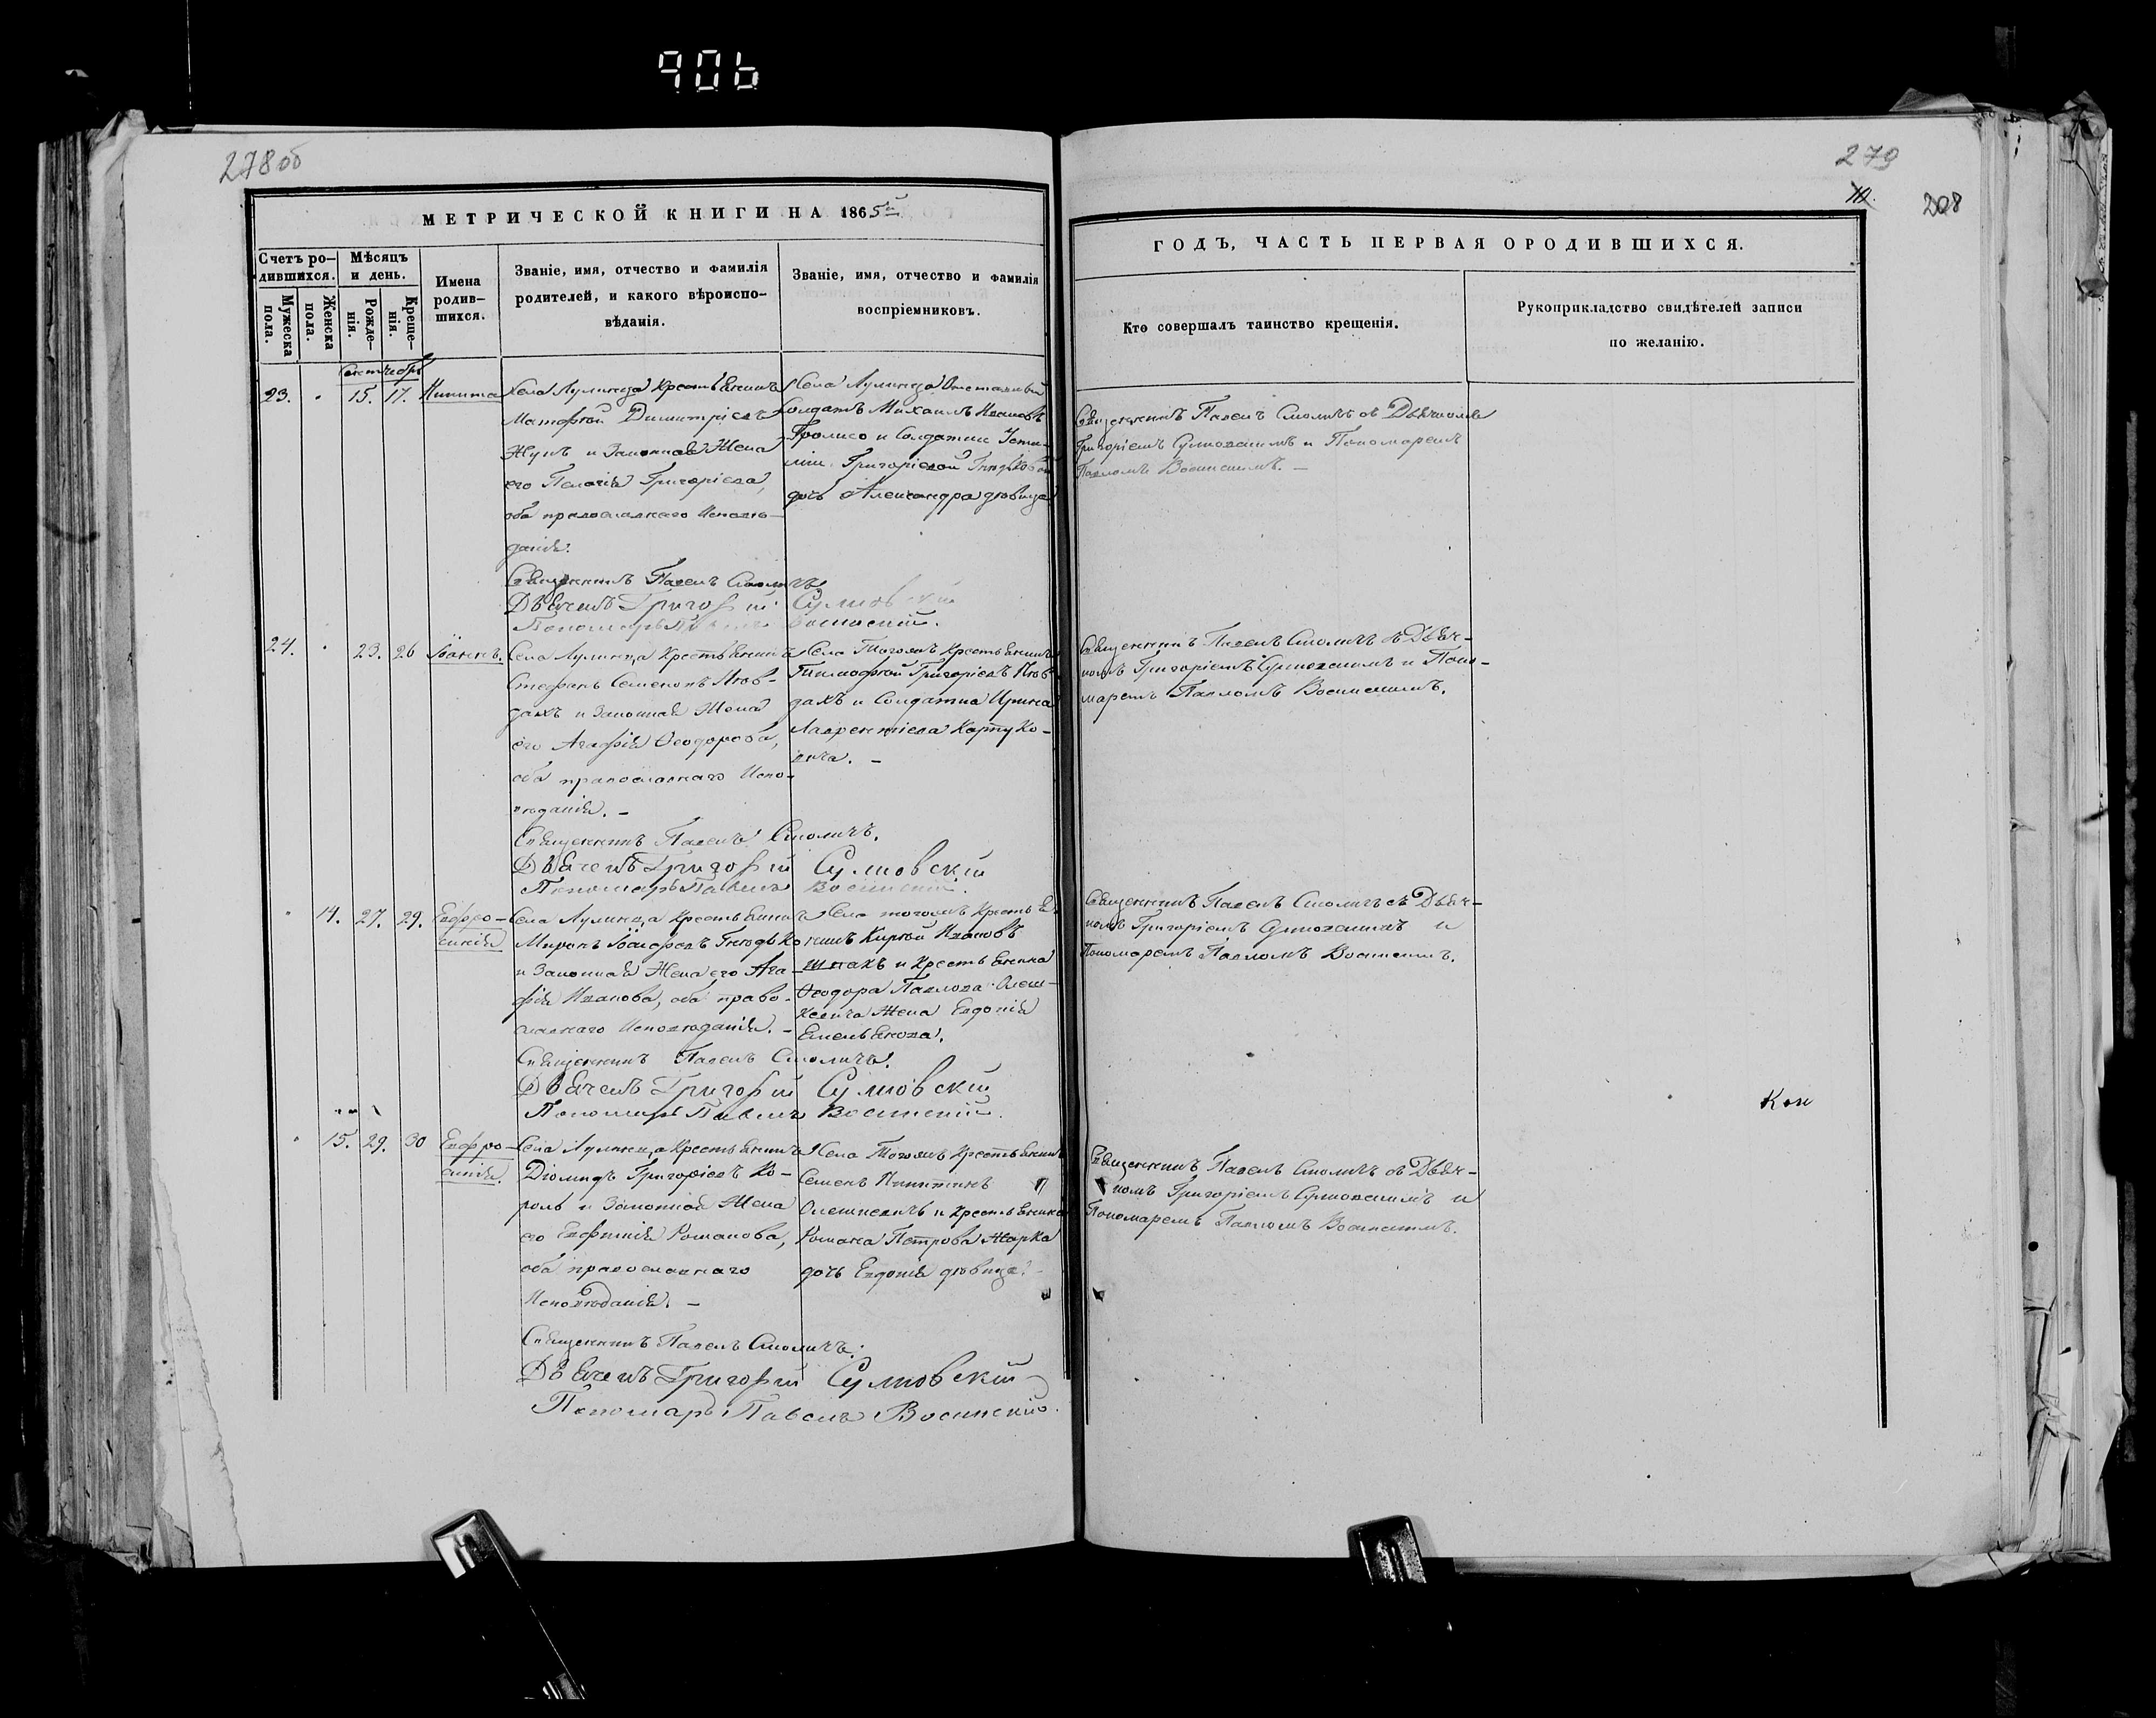 906
278об
МЕТРИЧЕСКОЙ КНИГИ НА 1865й
Счетъ ро-
дившихся.
Мѣсяцъ
и день.
Мужеска
пола.
Женска
пола.
Рожде-
нія.
Креще-
нія.
Имена
родив-
шихся.
Званіе, имя, отчество и фамилія
родителей, и какого вѣроиспо-
вѣданія.
Званіе, имя, отчество и фамилія
воспріемниковъ.
23. 15. 17. Никита
Села Лулинца Крестьянинъ
Матфей Димитріевъ
Жукъ и Законная Жена
его Пелагія Григоріева,
оба православнаго Исповѣ-
данія.
Села Лулинца Отставный
Солдатъ Михаилъ Ивановъ
и Солдатки
Григоріевой
дочь Александра дѣвица
Священникъ Павелъ Смоличъ
Дьячекъ Григорій Сулковскій
Пономарь Павелъ
24. 23. 26 Іоаннъ.
Села Лулинца Крестьянинъ
Стефанъ Семеновъ
и Законная Жена
его Агафія Ѳеодорова,
оба православнаго Испо-
вѣданія. –
Села Тогожъ Крестьянинъ
Тимофей Григоріевъ
и Солдатка Ирина
Лаврентіева
Священникъ Павелъ Смоличъ.
Дьячекъ Григорій Сулковскій
Пономарь Павелъ
14. 27. 29. Евфро-
синія
Села Лулинца Крестьянинъ
Миронъ Іосифовъ Гнѣдько
и Законная Жена его Ага-
фія Иванова, оба право-
славнаго Исповѣданія. –
Села тогожъ Крестья-
нинъ Кирей Ивановъ
Шпакъ и Крестьянина
Ѳеодора Павлова Олеш-
кевича Жена Евдокія
Емельянова.
Священникъ Павелъ Смоличъ.
Дьячекъ Григорій Сулковскій
Пономарь Павелъ
15. 29. 30 Евфро-
синія.
Села Лулинца Крестьянинъ
Діомидъ Григоріевъ Ко-
роль и Законная Жена
его Евфимія Романова,
оба православнаго
Исповѣданія. –
Села Тогожъ Крестьянинъ
Семенъ Никитинъ
Олешкевичъ и Крестьянина
Романа Петрова Жарка
дочь Евдокія дѣвица. –
Священникъ Павелъ Смоличъ.
Дьячекъ Григорій Сулковскій
Пономарь Павелъ
279
208
ГОДЪ, ЧАСТЬ ПЕРВАЯ ОРОДИВШИХСЯ.
Кто совершалъ таинство крещенія.
Рукоприкладство свидѣтелей записи
по желанію.
Священникъ Павелъ Смоличъ съ Дьячкомъ
Григоріемъ Сулковскимъ и Пономаремъ
Павломъ
Священникъ Павелъ Смоличъ съ Дьяч-
комъ Григоріемъ Сулковскимъ и Поно-
маремъ Павломъ
Священникъ Павелъ Смоличъ съ Дьяч-
комъ Григоріемъ Сулковскимъ и
Пономаремъ Павломъ
Священникъ Павелъ Смоличъ съ Дьяч-
комъ Григоріемъ Сулковскимъ и
Пономаремъ Павломъ